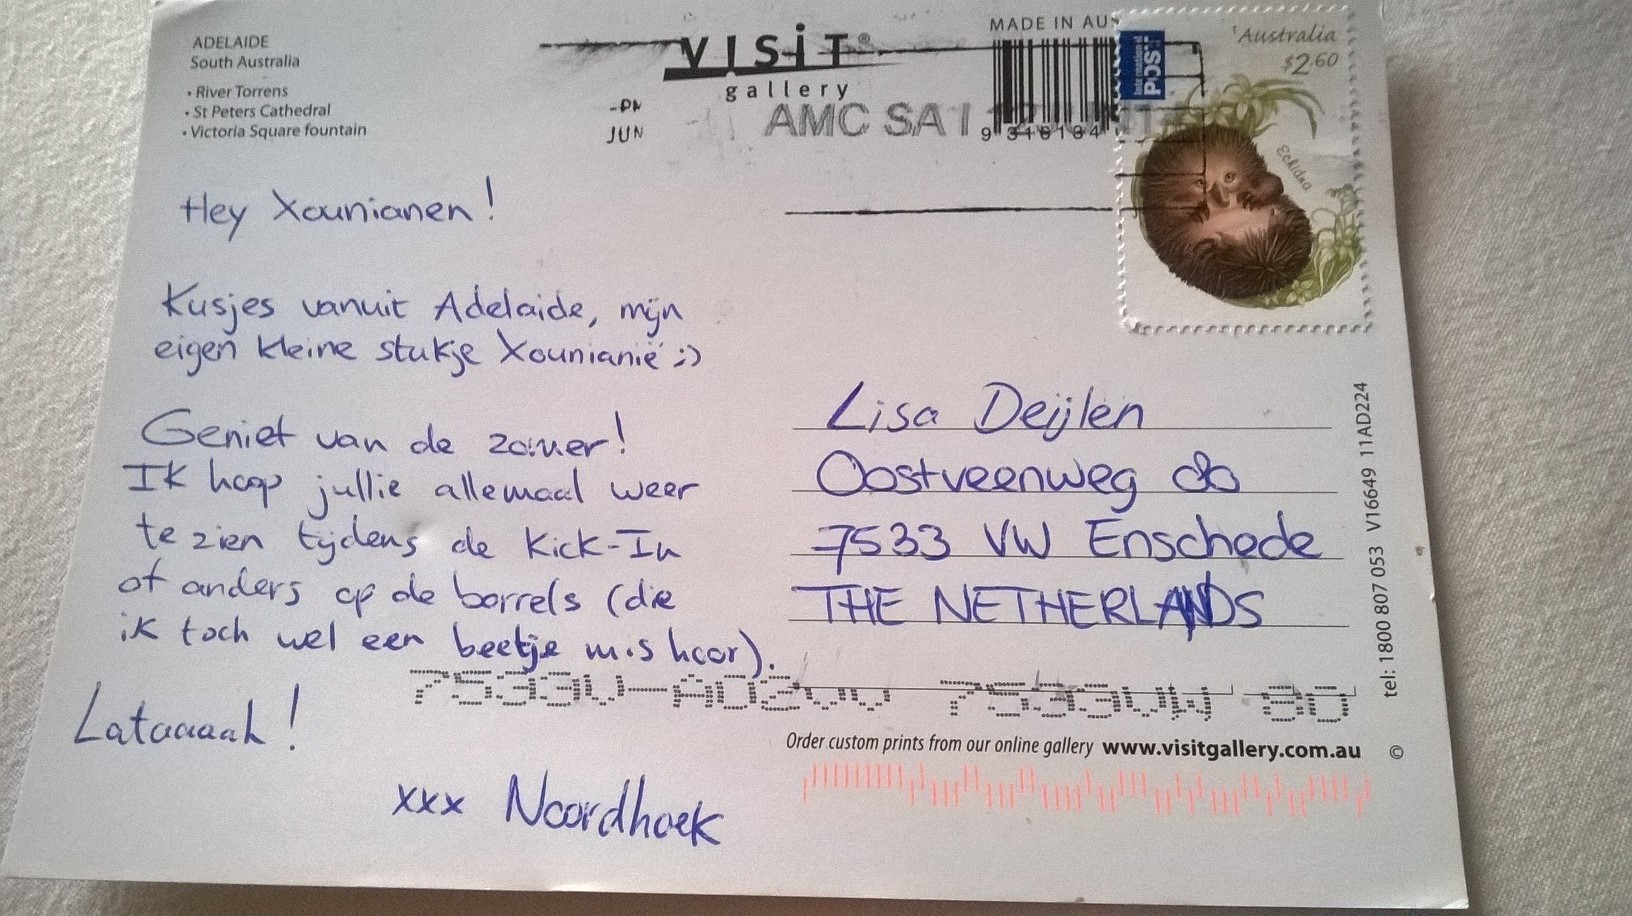 ADELAIDE
South Australia
• River Torrens
• St Peters Cathedral
• Victoria Square fountain
VISiT®
gallery
MADE IN AU
-PM
JUN
AMC SA
9 318184
International
POST
Australia
$2.60
Echidna
Hey Xounianen!
Kusjes vanuit Adelaide, mijn
eigen kleine stukje Xounianië ;)
Geniet van de zomer!
Ik hoop jullie allemaal weer
te zien tijdens de Kick-In
of anders op de borrels (die
ik toch wel een beetje mis hoor).
Lataaaah!
xxx Noordhoek
Lisa Deijlen
Oostveenweg 80
7533 VW Enschede
THE NETHERLANDS
7533VW 80
Order custom prints from our online gallery www.visitgallery.com.au ©
tel: 1800 807 053 V16649 11AD224